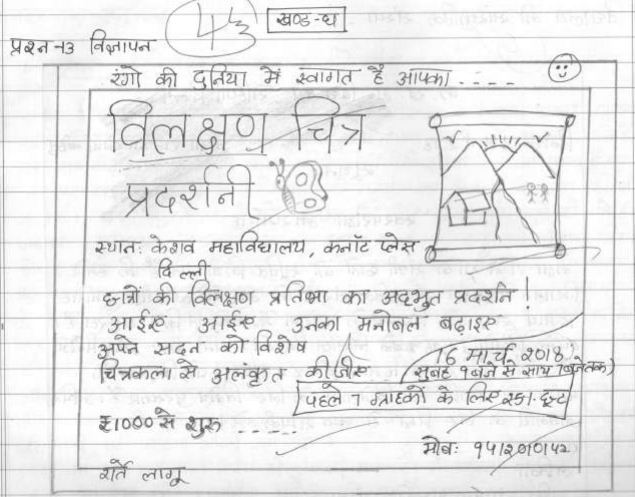 खण्ड-घ
प्रश्न-13 विज्ञापन
रंगो की दुनिया में स्वागत है आपका . - - -
विलक्षण चित्र
प्रदर्शनी
स्थान: केशव महाविद्यालय, कनॉट प्लेस
दिल्ली
छात्रों की विलक्षण प्रतिभा का अद्भुत प्रदर्शन!
आईए आईए उनका मनोबल बढ़ाइए
अपने सदन को विशेष
चित्रकला से अलंकृत कीजीए
16 मार्च 2018
(सुबह 9 बजे से सायं 7 बजे तक)
पहले 7 ग्राहकों के लिए छूट
₹1000 से शुरू - - - - -
मोब: 9412010142
शर्ते लागू